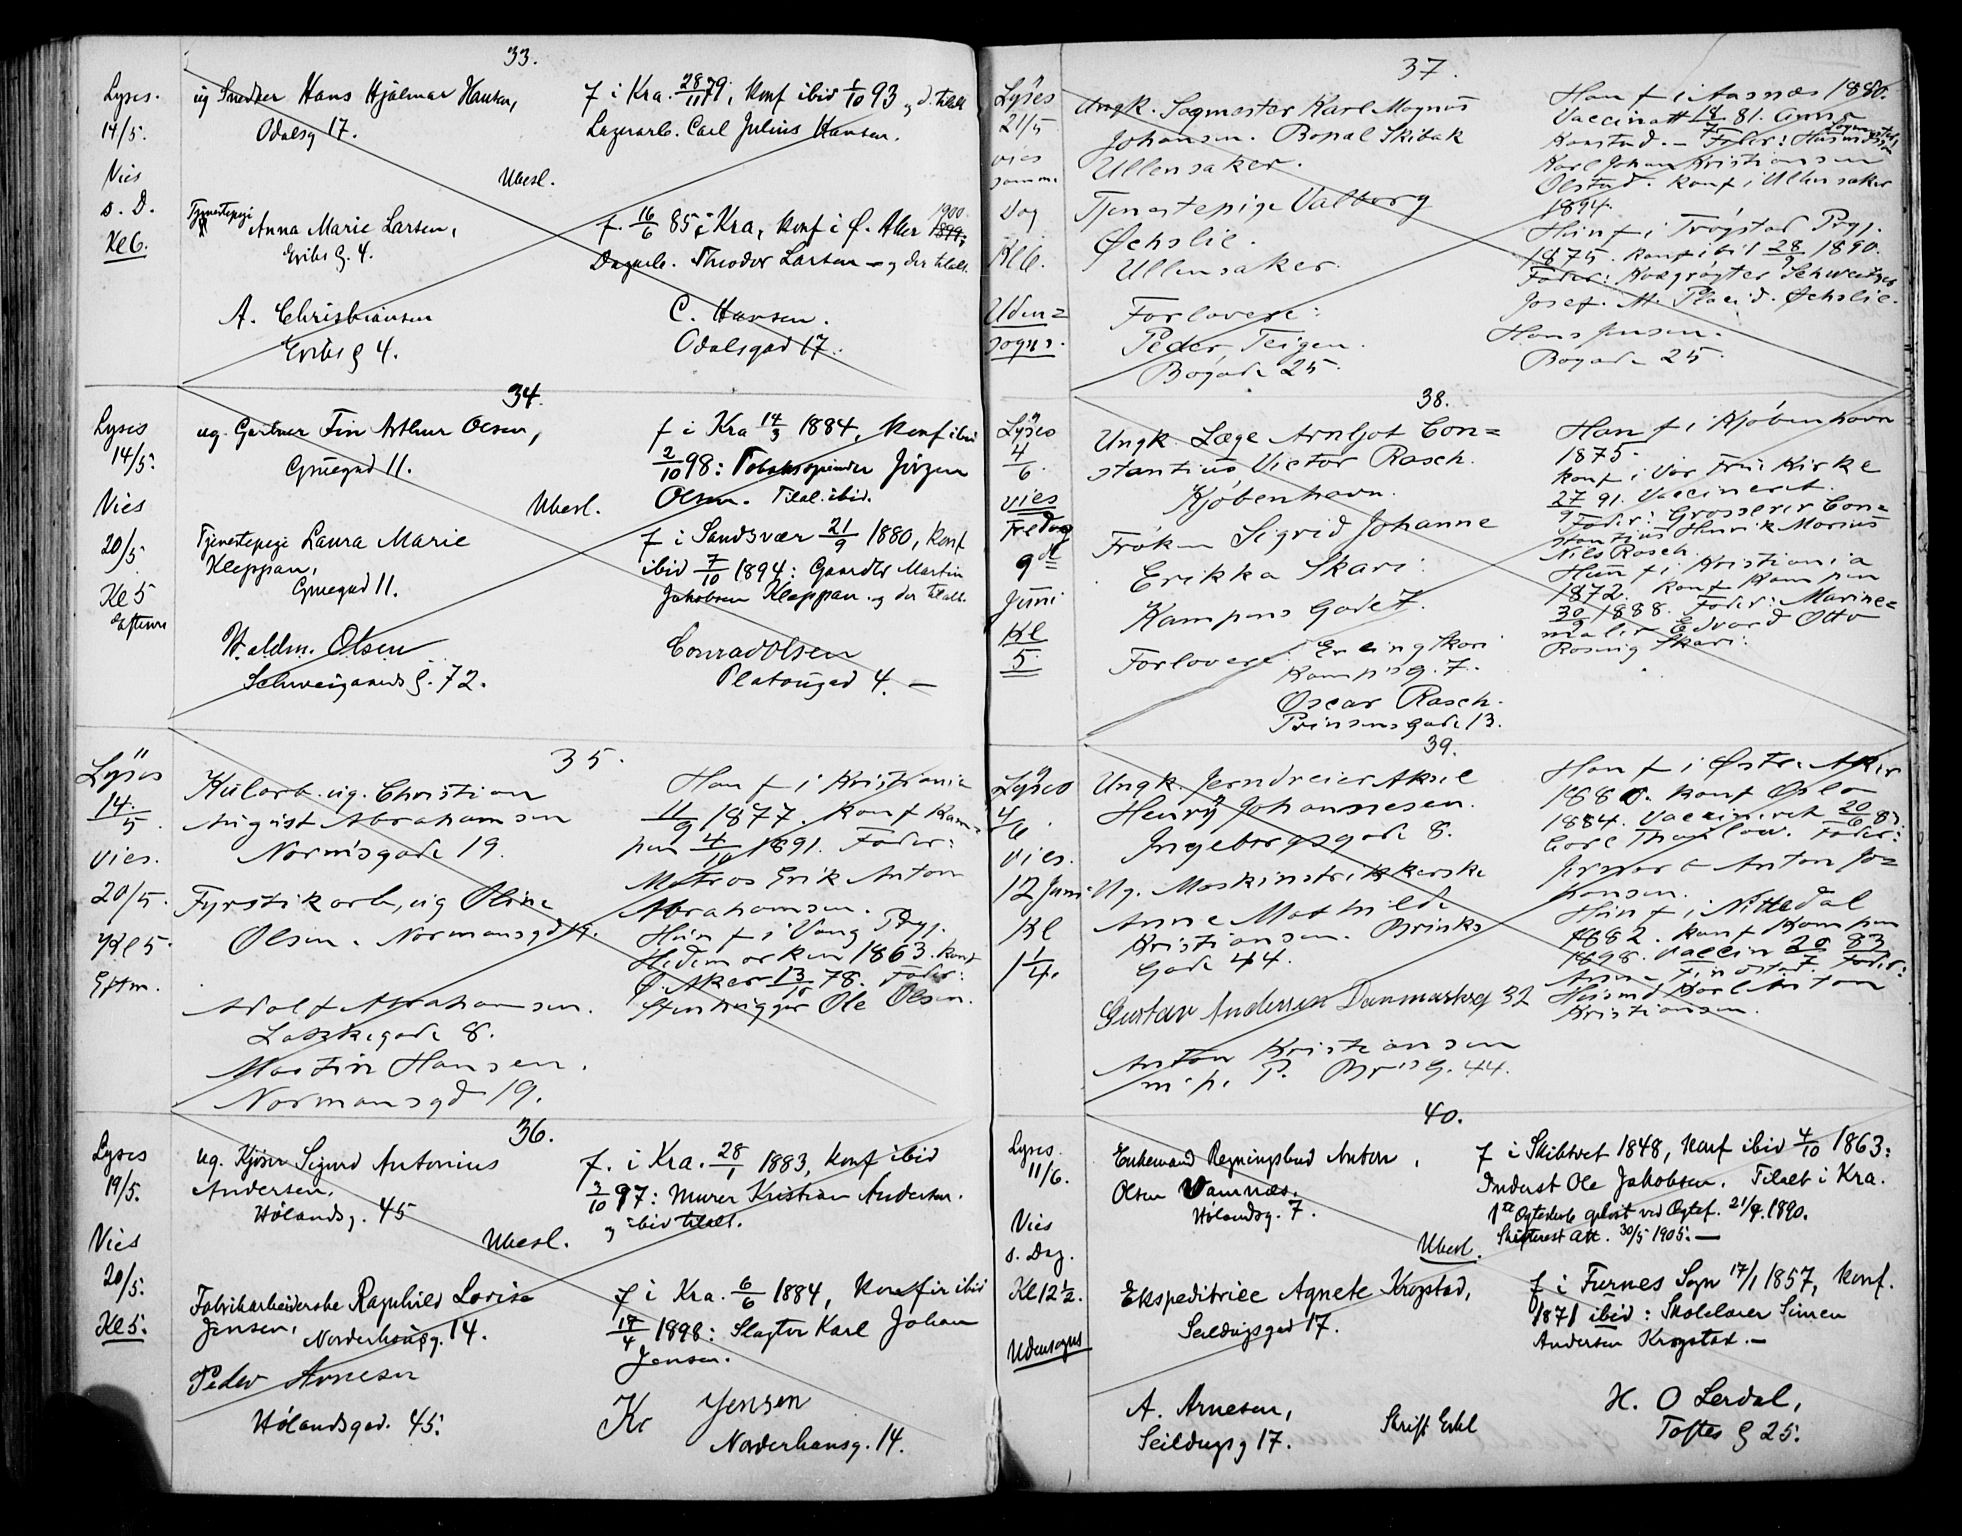 33.
Lyses.
14/5.
Vies
s. D.
Kl 6.
ug Snedker Hans Hjalmar Hansen,
Odalsg 17.
f i Kra. 28/11 79, konf ibid 1/10 93, d. tilalt
Lagerarb. Carl Julius Hansen.
Ubesl.
Tjenestepige Anna Marie Larsen,
Eriks g. 4.
f. 16/6 85 i Kra, konf i Ø. Aker 1899; 1900.
Dagarb. Theodor Larsen – og der tilalt.
A. Christiansen
Eriks g 4.
C. Hansen.
Odalsgad 17.
34.
Lyses
14/5.
Vies
20/5
Kl 5
Efterm
ug. Gartner Fin Arthur Olsen,
Gruegad 11.
f i Kra 14/3 1884, konf ibid
2/10 98: Tobakspinder Jörgen
Olsen. Tilal. ibid.
Ubesl.
Tjenestepige Laura Marie
Kleppan,
Gruegad 11.
f i Sandsvær 21/9 1880, konf
ibid 7/10 1894: Gaardbr Martin
Jakobsen Kleppan og der tilalt.
W aldm. Olsen
Schweigaards g. 72.
Conrad Olsen
Platougad 4. –
35.
Lyses
14/5.
vies.
20/5.
Kl 5.
Eftm.
Kulorb. ug. Christian
August Abrahamsen
Normsgade 19.
Han f i Kristiania
11/9 1877. konf Kam=
pen 4/10 1891. Fader:
Matros Erik Anton
Abrahamsen.
Fyrstikarb, ug Oline
Olsen. Normansgd 19.
Hun f i Vang Prgj.
Hedemarken 1863. konf
Ø. Aker 13/10 78. Fader:
Stenhugger Ole Olsen.
Adolf Abrahamsen.
Lakkegade 8.
Martin Hansen.
Normansgd 19.
36.
Lyses
19/5.
Vies
20/5.
Kl 5.
ug. Kjører Sigurd Antonius
Andersen,
Hølandsg. 45
f. i Kra. 28/1 1883, konf ibid
3/10 97: Murer Kristian Andersen.
og ibid tilalt.
Ubesl.
Fabrikarbeiderske Ragnhild Lovise
Jensen, Norderhousg. 14.
f i Kra. 6/6 1884, konfir ibid
17/4 1898: Slagter Karl Johan
Jensen.
Peder Arnesen
Hølandsgad. 45.
Kr Jensen
Norderhousg. 14.
37.
Lyses
21/5
vies
samme
Dag
Kl 6.
Uden=
sogns.
Ungk. Sagmester Karl Magnus
Johansen. Bopæl Skibak
Ullensaker.
Han f i Aasnæs 1880.
Vaccinatt 14/7 81. Anne
Konstad. – Fader: Husmd, Sagmester
Karl Johan Kristiansen
Olstad. konf i Ullensaker
1894.
Tjenestepige Valborg
Øchslie.
Ullensaker.
Hun f i Trøgstad Prgj.
1875. konf ibid 28/9 1890.
Fader: Kvægrøgter Schweitser
Josef M. Placid. Øchslie.
Forlovere:
Peder Teigen.
Bogade 25.
Hans Jensen.
Bogade 25.
38.
Lyses
4/6.
vies
Fredag
9de
Juni
Kl
5
Ungk. Læge Arnljot Con=
stantius Victor Rasch.
Kjøbenhavn.
Han f i Kjøbenhavn
1875.
konf i Vor Frue Kirke
27/9 91. Vaccineret.
Fader: Grosserer Con=
stantius Henrik Marius
Nils Rasch.
Frøken Sigrid Johanne
Erikka Skari.
Kampens Gade 7.
Hun f i Kristiania
1872. konf Kampen
30/9 1888. Fader: Marine=
maler Edvard Otto
Rosing Skari.
Forlovere: Erling Skari
Kamp's g. 7.
Oscar Rasch.
Prinsensgade 13.
39.
Lyses
4/6.
vies.
12 Juni
Kl
1 1/4.
Ungk. Jerndreier Aksel
Henry Johannesen.
Ingeborgsgade 8.
Han f i Østre Aker
1880. konf Oslo
1884. Vaccineret 20/6 83
Carl Thaulow. Fader:
Jernar a Anton Jo=
hansen.
Ug. Maskinstrikkerske
Anne Mathilde
Kristiansen. Brinks
Gade 44.
Hun f i Nittedal
1882. konf Kampen
1898. Vaccin 20/7 83
Arne Finstad. Fader:
Husmd Karl Anton
Kristiansen.
Gustav Andersen Danmarksg 32
Anton Kristiansen
m. p. P. Br's G. 44.
40.
Lyses.
11/6.
Vies
s. Dag.
Kl 12 1/2.
Udensogns
Enkemand Regningsbud Anton
Olsen Vamnæs,
Hølandsg. 7.
f i Skibtvet 1848, konf ibid 4/10 1863:
Inderst Ole Jakobsen. Tilalt i Kra.
1ste Ægteskab opløst ved Ægtef. 21/9. 1890.
Skifterest Att. 30/5 1905. –
Ubesl.
Ekspeditrice Agnete Krogstad,
Seildugsgad 17.
f i Furnes Sogn 17/1 1857, konf.
1871 ibid: Skolelærer Simen
Andersen Krogstad. –
A. Arnesen,
Seildugsg 17.
Skrift Erkl
H. O Lerdal,
Toftes g 25.